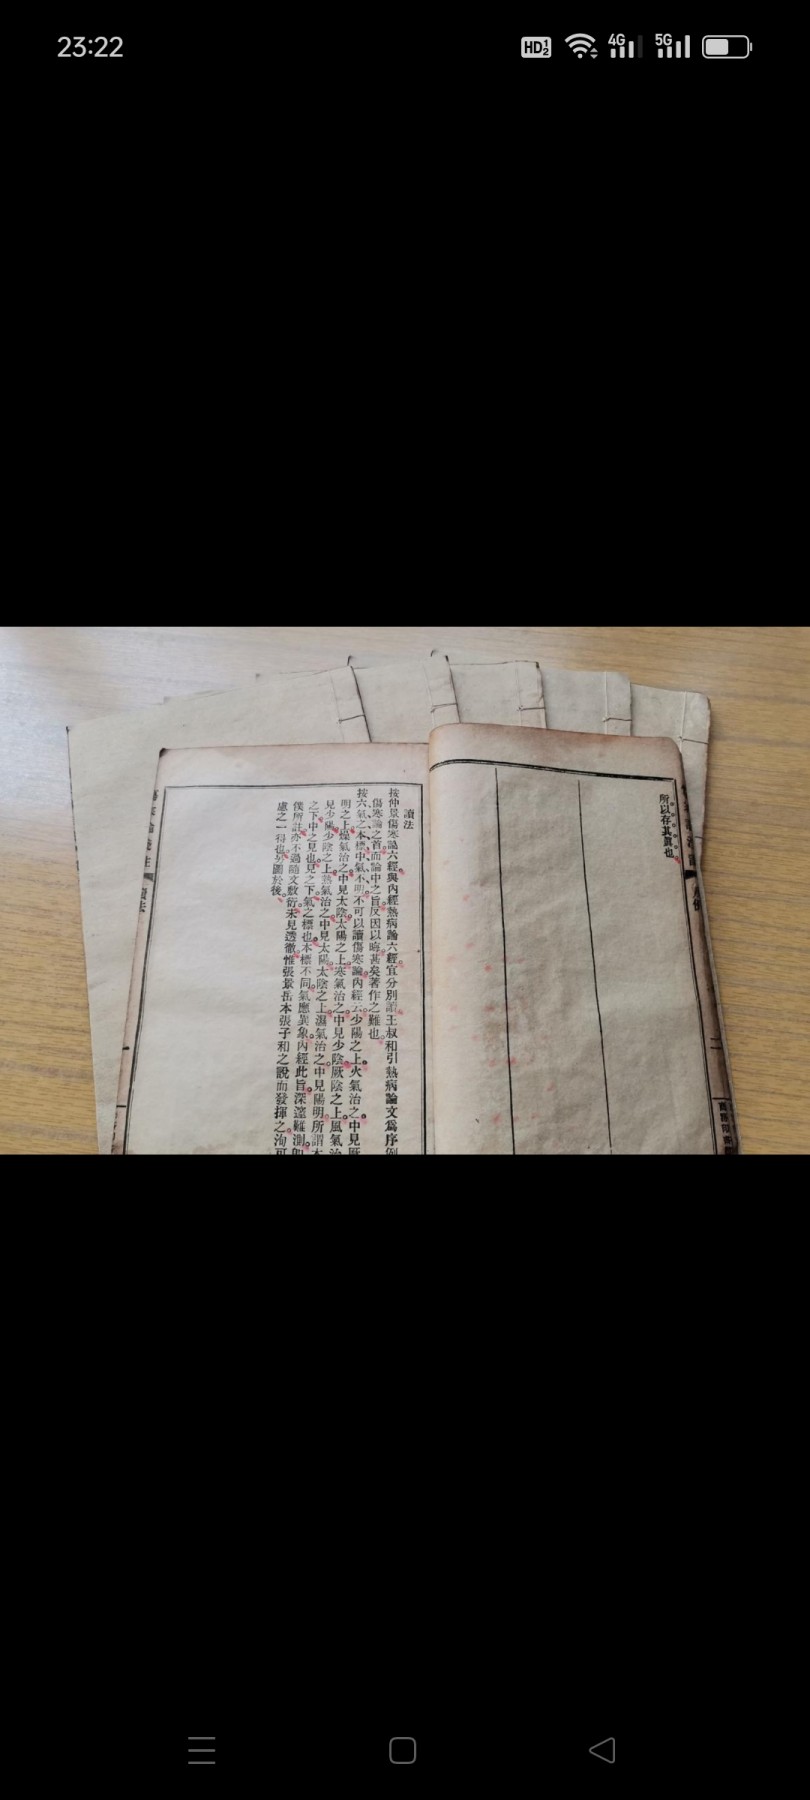 23:22
HD
4G
5G
所以存其眞也
讀法
按仲景傷寒論六經與內經熱病論六經宜分別讀王叔和引熱病論文爲序例
傷寒論之首而論中之旨反因以晦甚矣著作之難也
按六氣之本標中氣不明不可以讀傷寒論內經云少陽之上火氣治之中見厥
明之上燥氣治之中見太陰太陽之上寒氣治之中見少陰厥陰之上風氣治
見少陽少陰之上熱氣治之中見太陽太陰之上濕氣治之中見陽明所謂本
之下中之見也見之下氣之標也本標不同氣應異象內經此旨深邃難測
僕所註亦不過隨文敷衍未見透徹惟張景岳本張子和之說而發揮之洵可
慮之一得也另圖於後